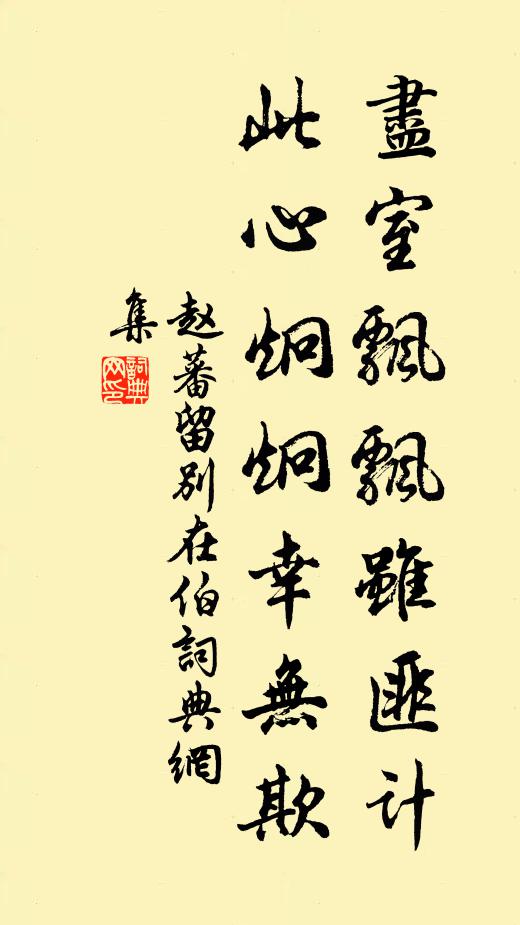 盡室飄飄雖匪計
此心炯炯幸無欺
赵蕃留別在伯詞典網
集
詞典
网印